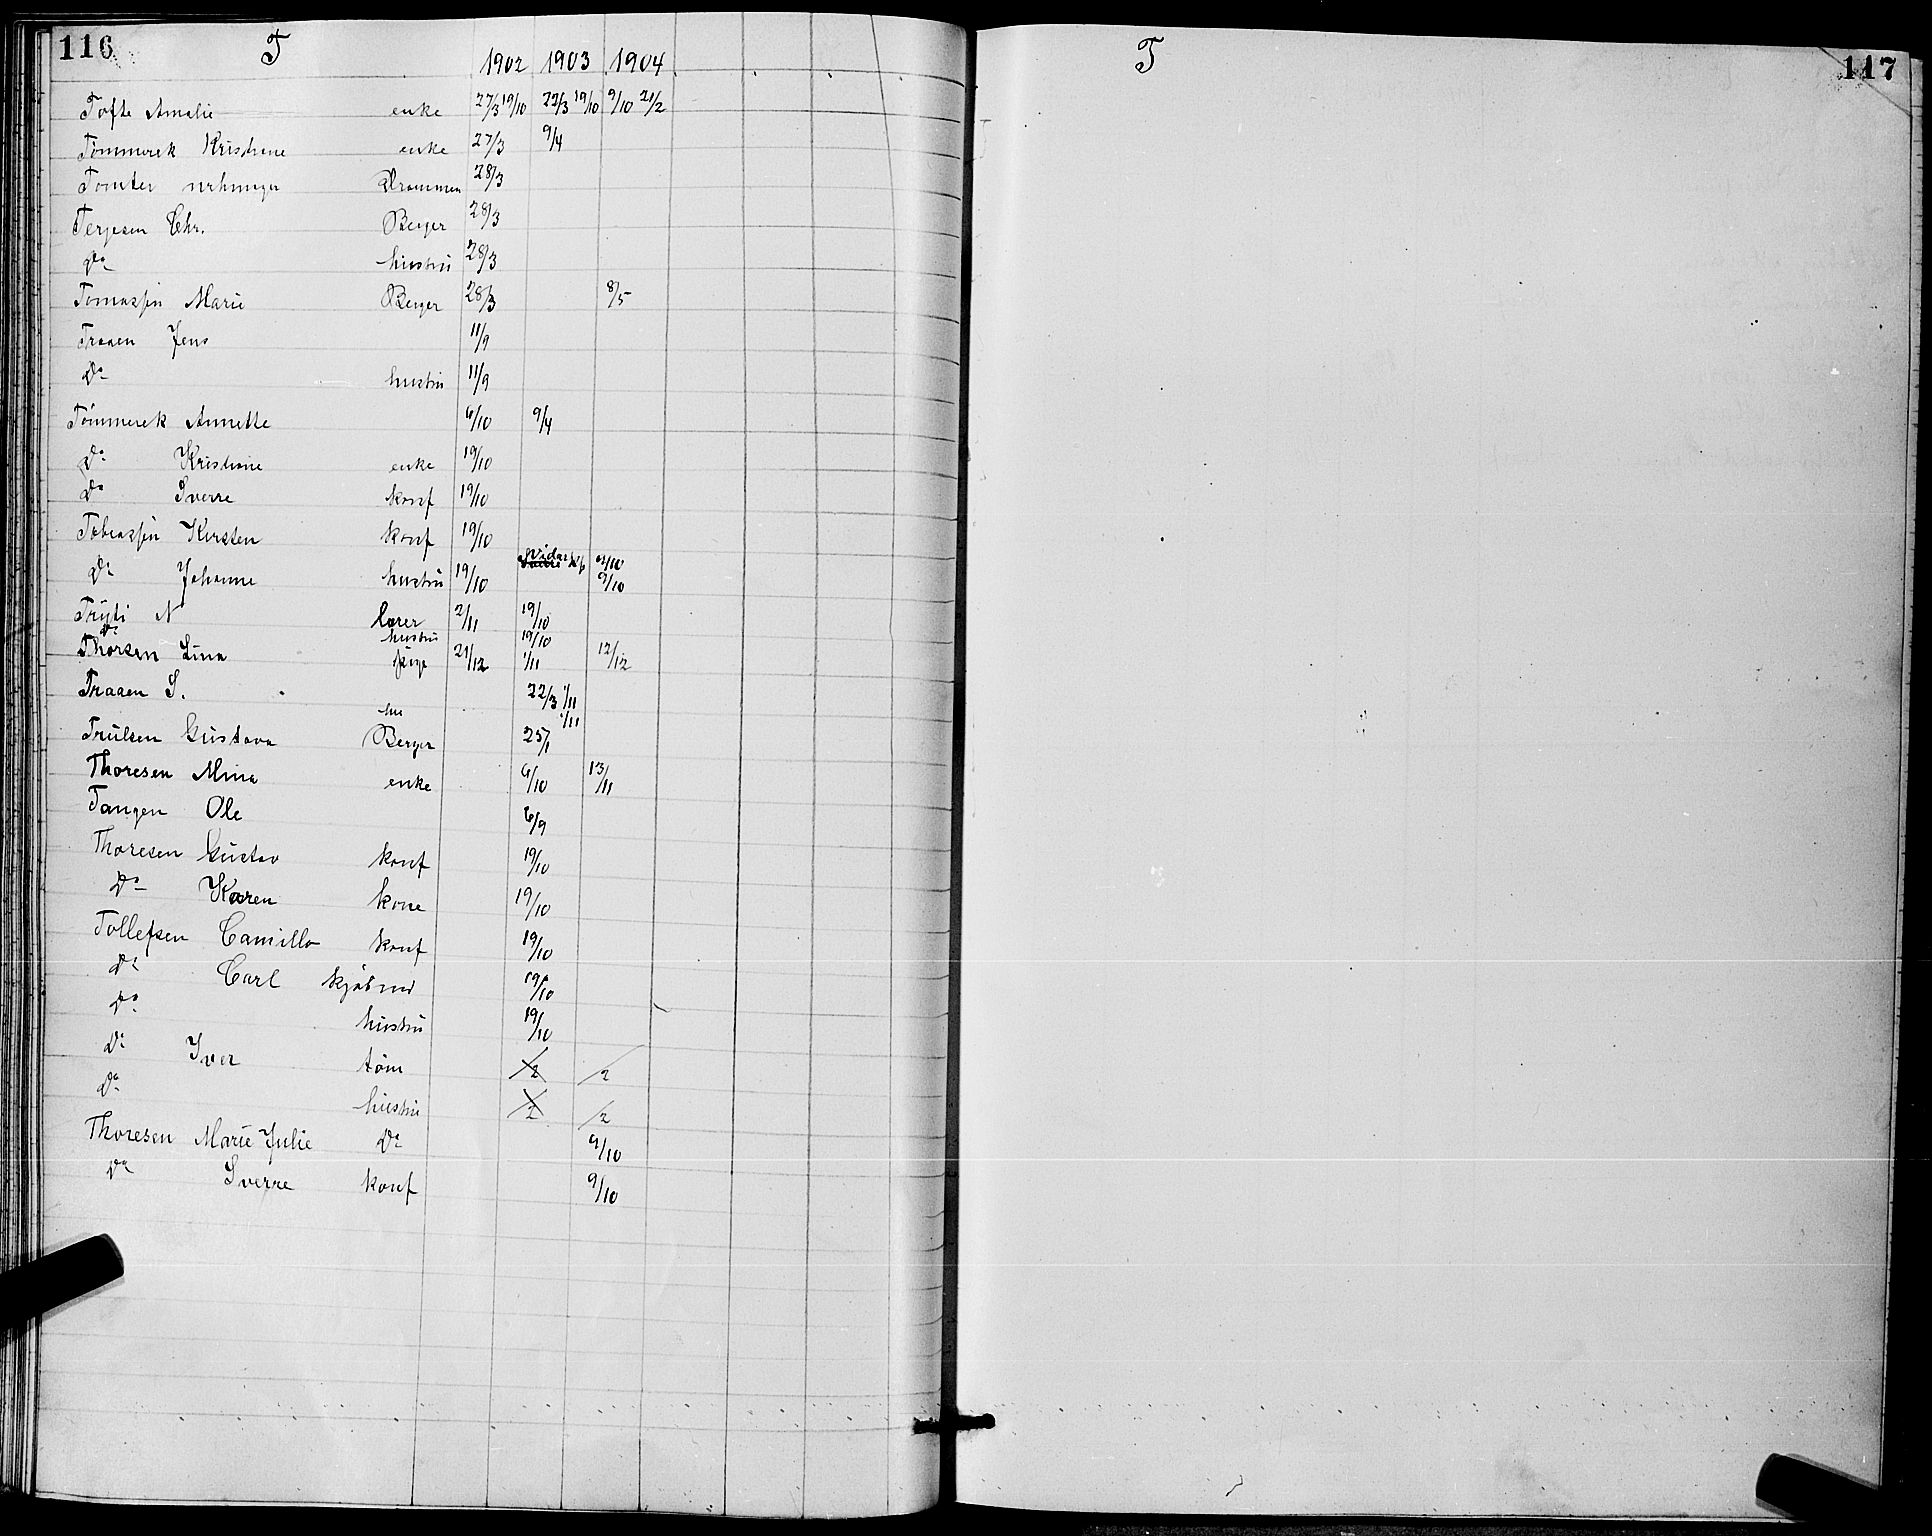 116 T
1902 1903 1904
Tofte Amalie enke 27/3 19/10 22/3 19/10 9/10 21/2
Tømmerek Kristiene enke 27/3 9/4
Tomter Drammen 28/3
Terjesen Chr. Berger 28/3
Do hustru 28/3
Tomassen Marie Berger 28/3 8/5
Traaen Jens 11/9
Do hustru 11/9
Tømmerek Annette 6/10 9/4
Do Kristiane enke 19/10
Do Sverre konf 19/10
Tobiassen Kirsten konf 19/10
Do Johanne hustru 19/10 9/10
N lærer 2/11 19/10
Do hustru 19/10
Thorsen Lina pige 21/12 1/11 12/12
Traaen S. 22/3 1/11
hu 1/11
Trulsen Gustava Berger 25/1
Thoresen Mina enke 6/10 13/11
Tangen Ole 6/9
Thoresen Gustav konf 19/10
Do Karen kone 19/10
Tollefsen Camilla konf 19/10
Do Carl kjøbmd 19/10
Do hustru 19/10
Do Iver tøm /2 /2
Do hustru /2 /2
Thoresen Marie Julie Do 9/10
Do Sverre konf 9/10
T 117